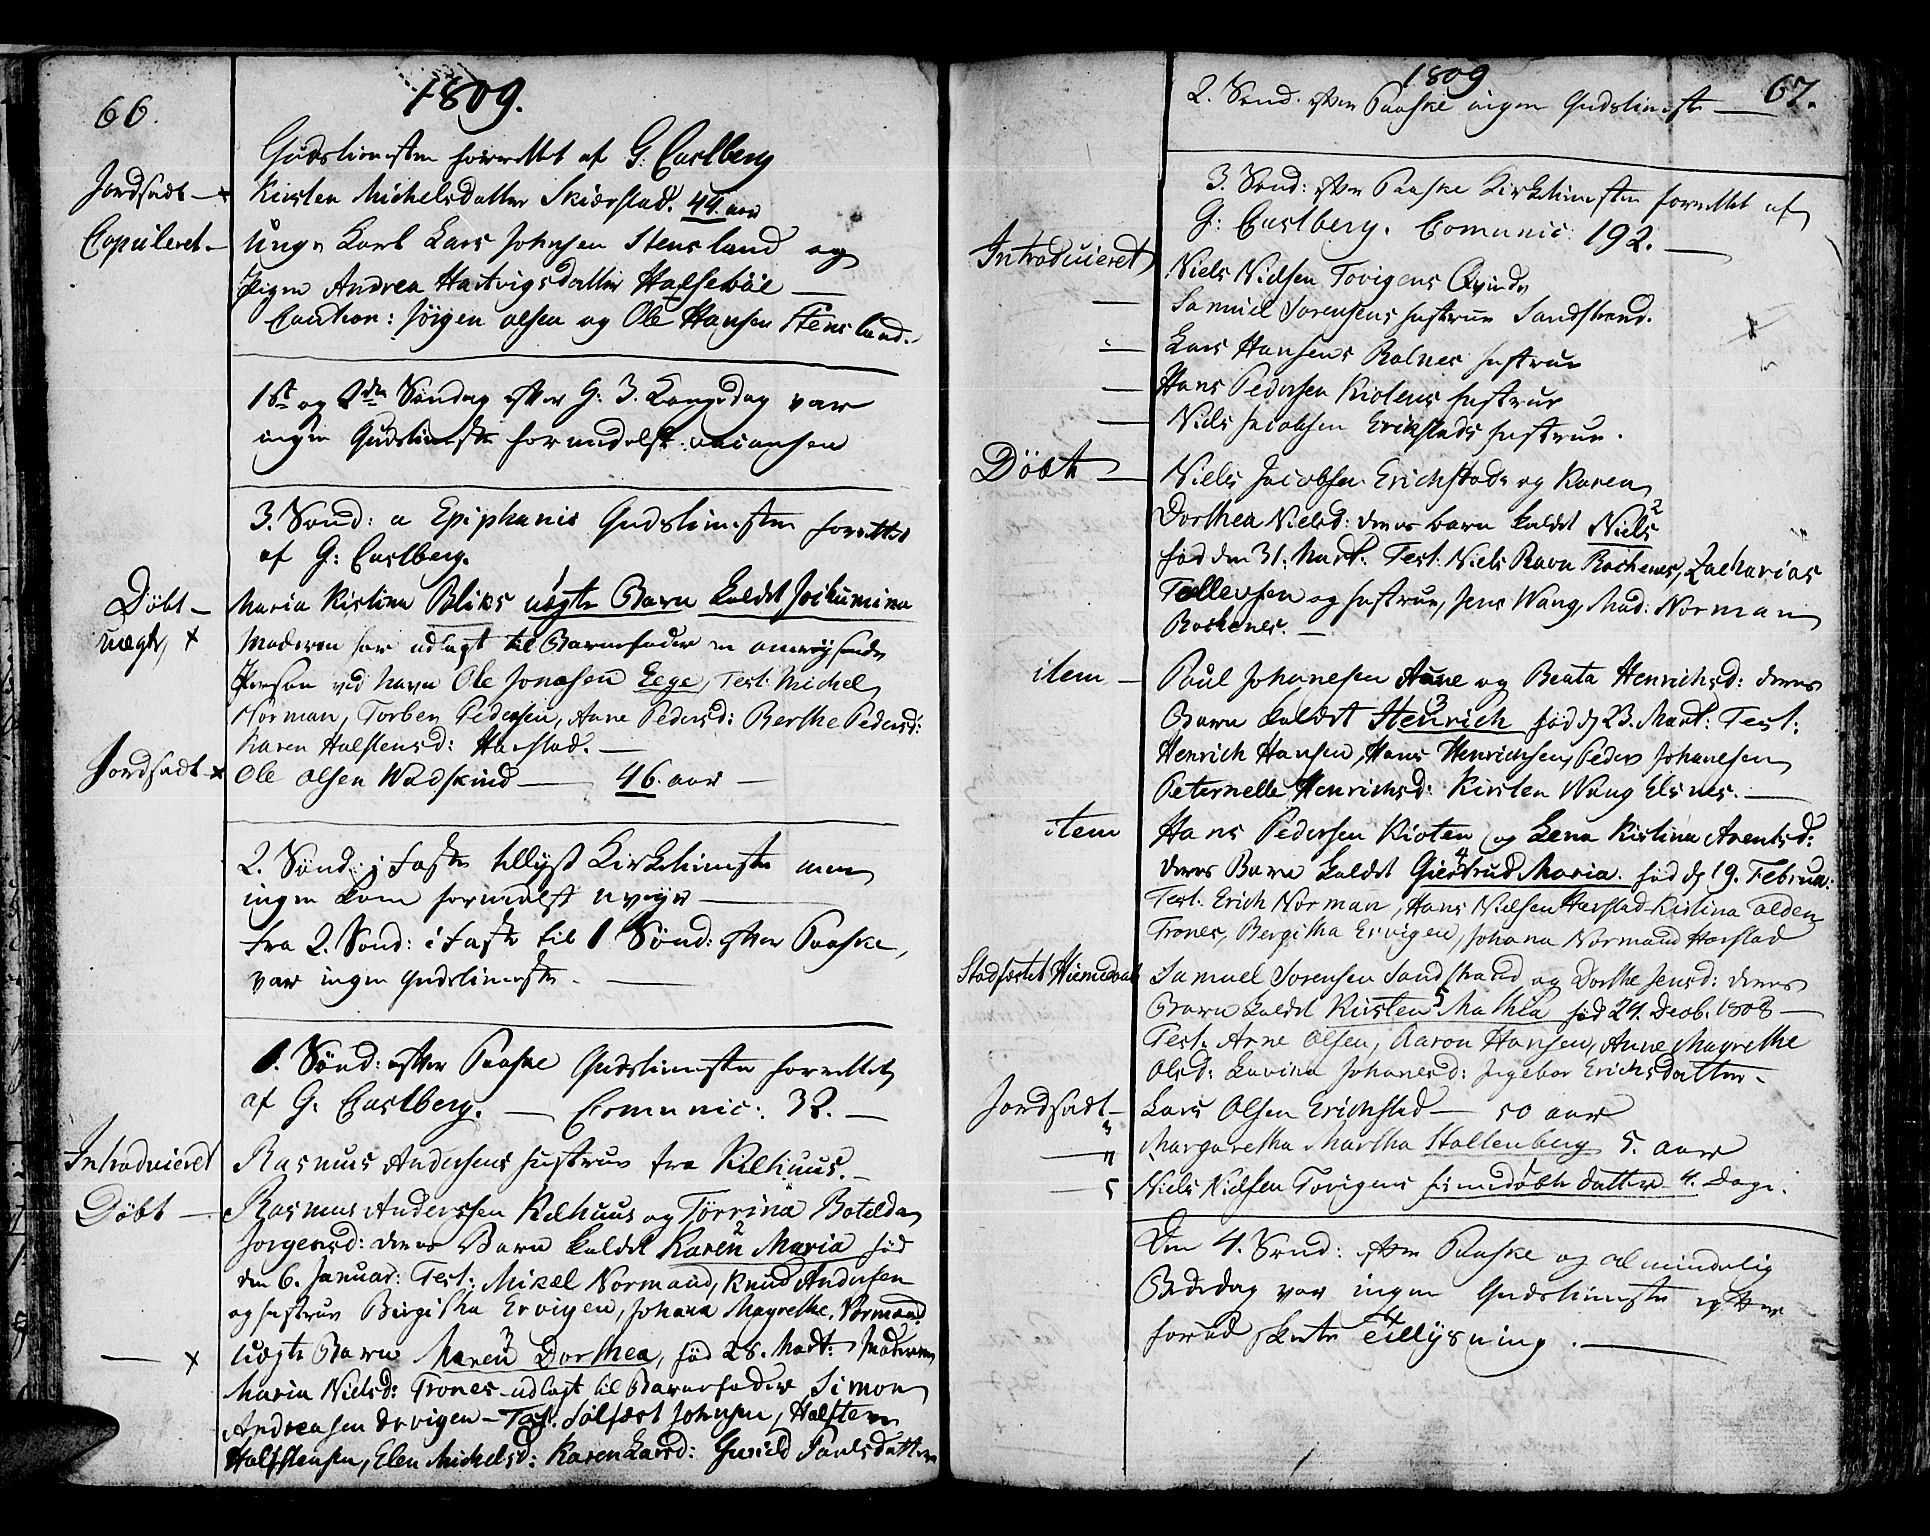 66.
1809.
Gudstienesten forrettet af G: Castberg
Jordfæstet — Kirsten Michelsdatter Skiærstad. 44. aar
Copuleret — Unge Karl Lars Johnsen Stensland og
Pigen Andrea Hartvigsdatter Halsebøe —
Caution: Jörgen Olsen og Ole Hansen Stensland.
1st og 2den Søndag efter H: 3. Kongedag var
ingen Gudstieneste formedelst
3. Sønd: a Epiphanie Gudstienesten forrettet
af G: Castberg.
Döbt — Maria Kistina Bliks uægte Barn kaldet Jochumina
uægte x Moderen har udlagt til Barnefader en omreysende
Person ved navn Ole Jonasen Eege, Test: Michel
Norman, Torben Pedersen, Anne Pedersd: Berthe Pedersd:
Karen Halstensd: Harstad. —
Jordfæstet x Ole Olsen Wadskind — 46. aar —
2. Sönd: i Faste tillyst Kirketieneste men
ingen kom formedelst uveyr —
Fra 2. Sønd: i Faste til 1 Sønd: efter Paaske,
var ingen Gudstieneste. —
1. Sönd: efter Paaske Gudstienesten forrettet
af G: Castberg. — Comunic: 32. —
Introduceret Rasmus Andersens hustrue fra Kilhuus. —
Döbt — Rasmus Anderssen Kilhuus og Törrina Botilda
Jorgensd: deres Barn kaldet Karen Maria fød
2
den 6. Januar: Test: Mikel Normand, Knud Andersen
og hustrue Birgitha Ervigen, Johana Magrethe Normand
— x uægte Barn Maren Dorthea, fød 28. Mart: Moderen
3
Maria Nielsd: Trones udlagt til Barnefader Simon
Andreasen Ervigen — Test. Sölfæst Johnsen, Halsten
Halstensen, Elen Michelsd: Karen Larsd: Gunild Paulsdatter
1809
67.
2. Sønd. efter Paaske ingen Gudstieneste —
3. Sønd: efter Paaske Kirketienesten forrettet af
G: Castberg. Comunic: 192. —
Introduceret Niels Nielsen Tovigens Qvinde
— Samuel Sorensens hustrue Sandstrand.
— Lars Hansens Rolnes hustrue
— Hans Pedersen Kiotens hustrue
— Niels Jacobsen Erikstads hustrue.
Döbt — Niels Jacobsen Erichstad og Karen
Dorthea Nielsd: deres barn kaldet Niels
2
fød den 31. Mart: Test: Niels Ravn Rochenes, Zacharias
Tollevsen og hustrue, Jens Wang, Mad: Norman
Rochenes. —
item — Paul Johanesen Aune og Beata Henrichsd: deres
Barn kaldet Henrich fød d 23. Mart: Test:
3
Henrich Hansen, Hans Henrichsen, Peder Johanesen
Peternelle Henrichsd: Kirsten Wang Elsnes. —
item Hans Pedersen Kioten og Lena Kistina Arentsd:
deres Barn kaldet Giertrud Maria. fød d 19. Februa:
4
Test. Erich Norman, Hans Nielsen Harstad Kistina Tolden
Trones, Bergitha Ervigen, Johana Normand Harstad
Stadfæstet Hiemedaab Samuel Sorensen Sandstrand og Dorthe Jensd: deres
Barn kaldet Kirsten Mathea fød 24. Decb. 1808 —
5
Test: Arne Olsen, Aaron Hansen, Anne Magrethe
Olsd: Lavina Johanesd: Ingebor Erichsdatter —
Jordfæstet — Lars Olsen Erichstad — 50 aar
— Margaretha Martha Stoltenberg 5. aar
— Niels Nielsen Tovigens hiemdöbte datter 4. dage.
Den 4. Sønd: efter Paaske og almindelig
Bededag var ingen Gudstieneste efter
forud skeete Tillysning. —